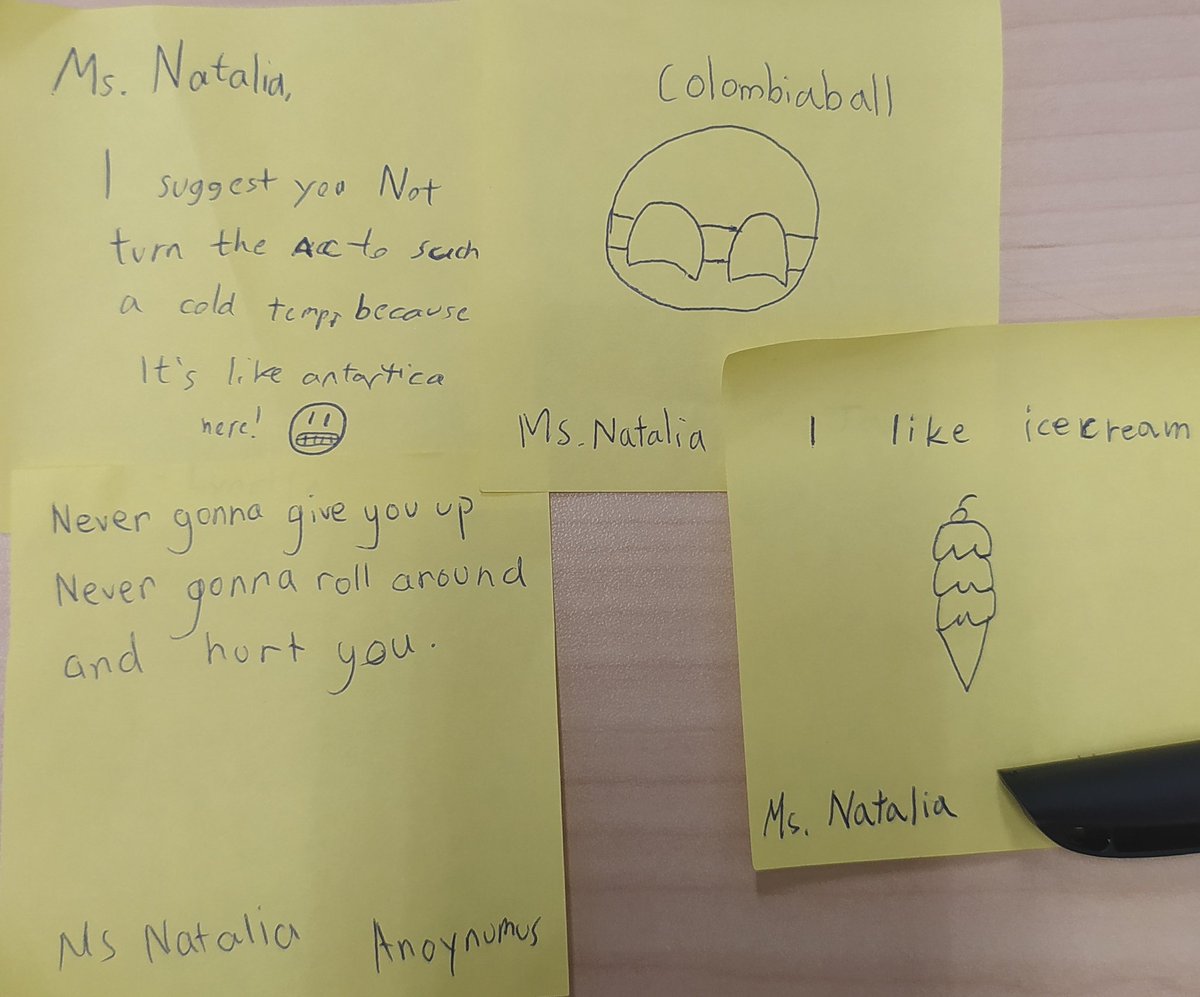 Ms. Natalia,
I suggest you Not
turn the AC to such
a cold temp, because
It's like antartica
here!
Colombiaball
Ms. Natalia
I like icecream
Ms. Natalia
Never gonna give you up
Never gonna roll around
and hurt you.
Ms Natalia Anoynumus